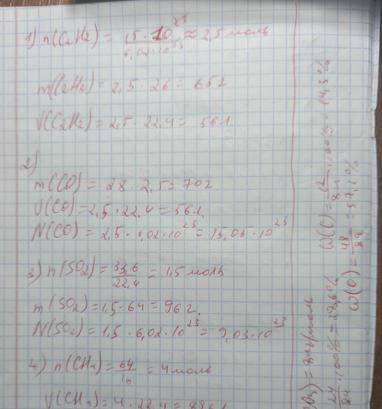 1) n(C₂H₂) = 15·10²³ / 6,02·10²³ ≈ 2,5 моль
m(C₂H₂) = 2,5·26 = 65 г
V(C₂H₂) = 2,5·22,4 = 56 л
2)
m(CO) = 28·2,5 = 70 г
V(CO) = 2,5·22,4 = 56 л
N(CO) = 2,5·6,02·10²³ = 15,05·10²³
3) n(SO₂) = 33,6 / 22,4 = 1,5 моль
m(SO₂) = 1,5·64 = 96 г
N(SO₂) = 1,5·6,02·10²³ = 9,03·10²³
4) n(CH₄) = 64 / 16 = 4 моль
V(CH₄) = 4·22,4
O₃) = 84 г/моль
24 / 84 ·100% = 28,6%
ω(C) = 12 / 84 ·100% = 14,3%
ω(O) = 48 / 84 = 57,1%